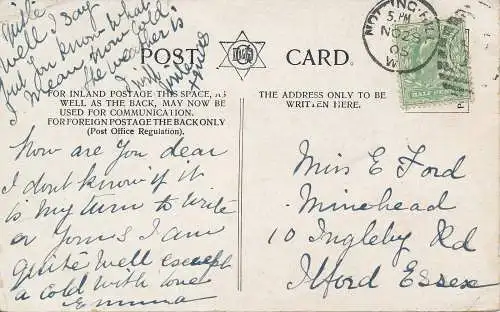 quite
well I say
but you know what
I mean how cold
the weather is
POST CARD.
FOR INLAND POSTAGE THIS SPACE, AS
WELL AS THE BACK, MAY NOW BE
USED FOR COMMUNICATION.
FOR FOREIGN POSTAGE THE BACK ONLY
(Post Office Regulation).
THE ADDRESS ONLY TO BE
WRITTEN HERE.
NOTTING-HILL
5. PM
NO 28
05
W
HALF PENNY
How are you dear
I dont know if it
is my turn to write
or yours I am
quite well except
a cold with love
Emma
Miss E Ford
Minehead
10 Ingleby Rd
Ilford Essex